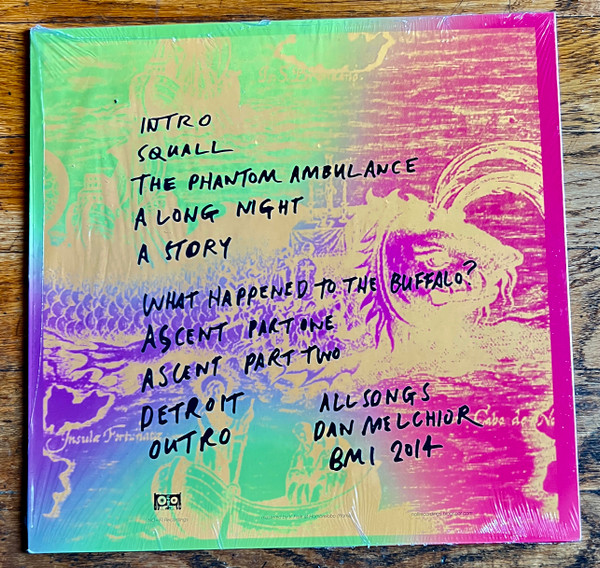 INTRO
SQUALL
THE PHANTOM AMBULANCE
A LONG NIGHT
A STORY
WHAT HAPPENED TO THE BUFFALO?
ASCENT PART ONE
ASCENT PART TWO
DETROIT
OUTRO
ALL SONGS
DAN MELCHIOR
BMI 2014
Insulæ Fortunatæ
Cabo de